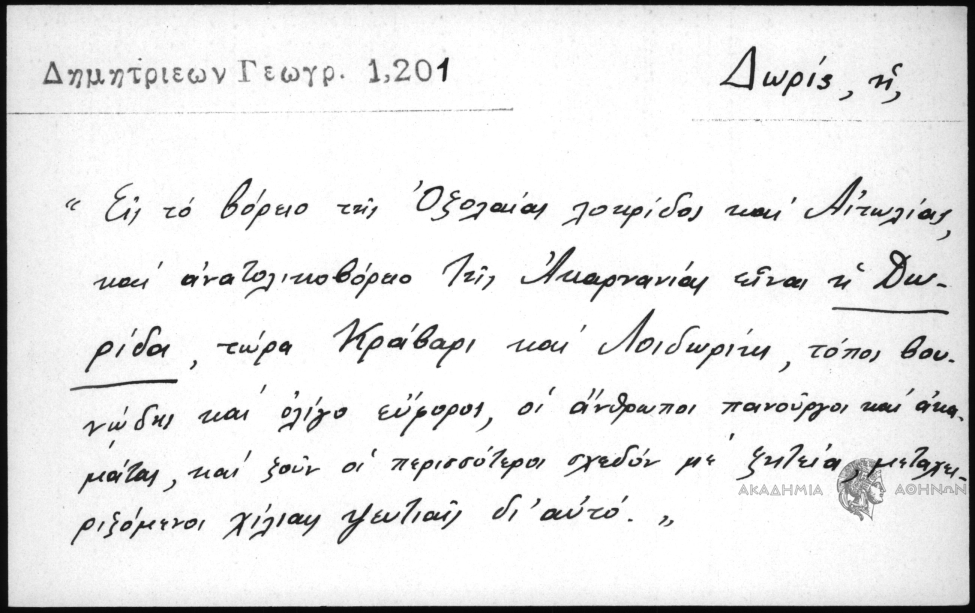 Δημητριεων Γεωγρ. 1,201
Δωρίς, ἡ,
“ Εἰς τό βόρειο τῆς Ὀξολαίας Λοκρίδος καί Αἰτωλίας,
καί ἀνατολικοβόρειο τῆς Ἀκαρνανίας εἶναι ἡ Δω-
ρίδα, τώρα Κράβαρι καί Λοιδωρίκι, τόποι βου-
νώδης καί ὀλίγο εὔφορος, οἱ ἄνθρωποι πανοῦργοι καί ἀκα-
μάτες, καί ζοῦν οἱ περισσότεροι σχεδόν μέ ζητεία, μεταχει-
ριζόμενοι χίλιαις ψευτιαῖς δι᾽ αὐτό. „
ΑΚΑΔΗΜΙΑ ΑΘΗΝΩΝ